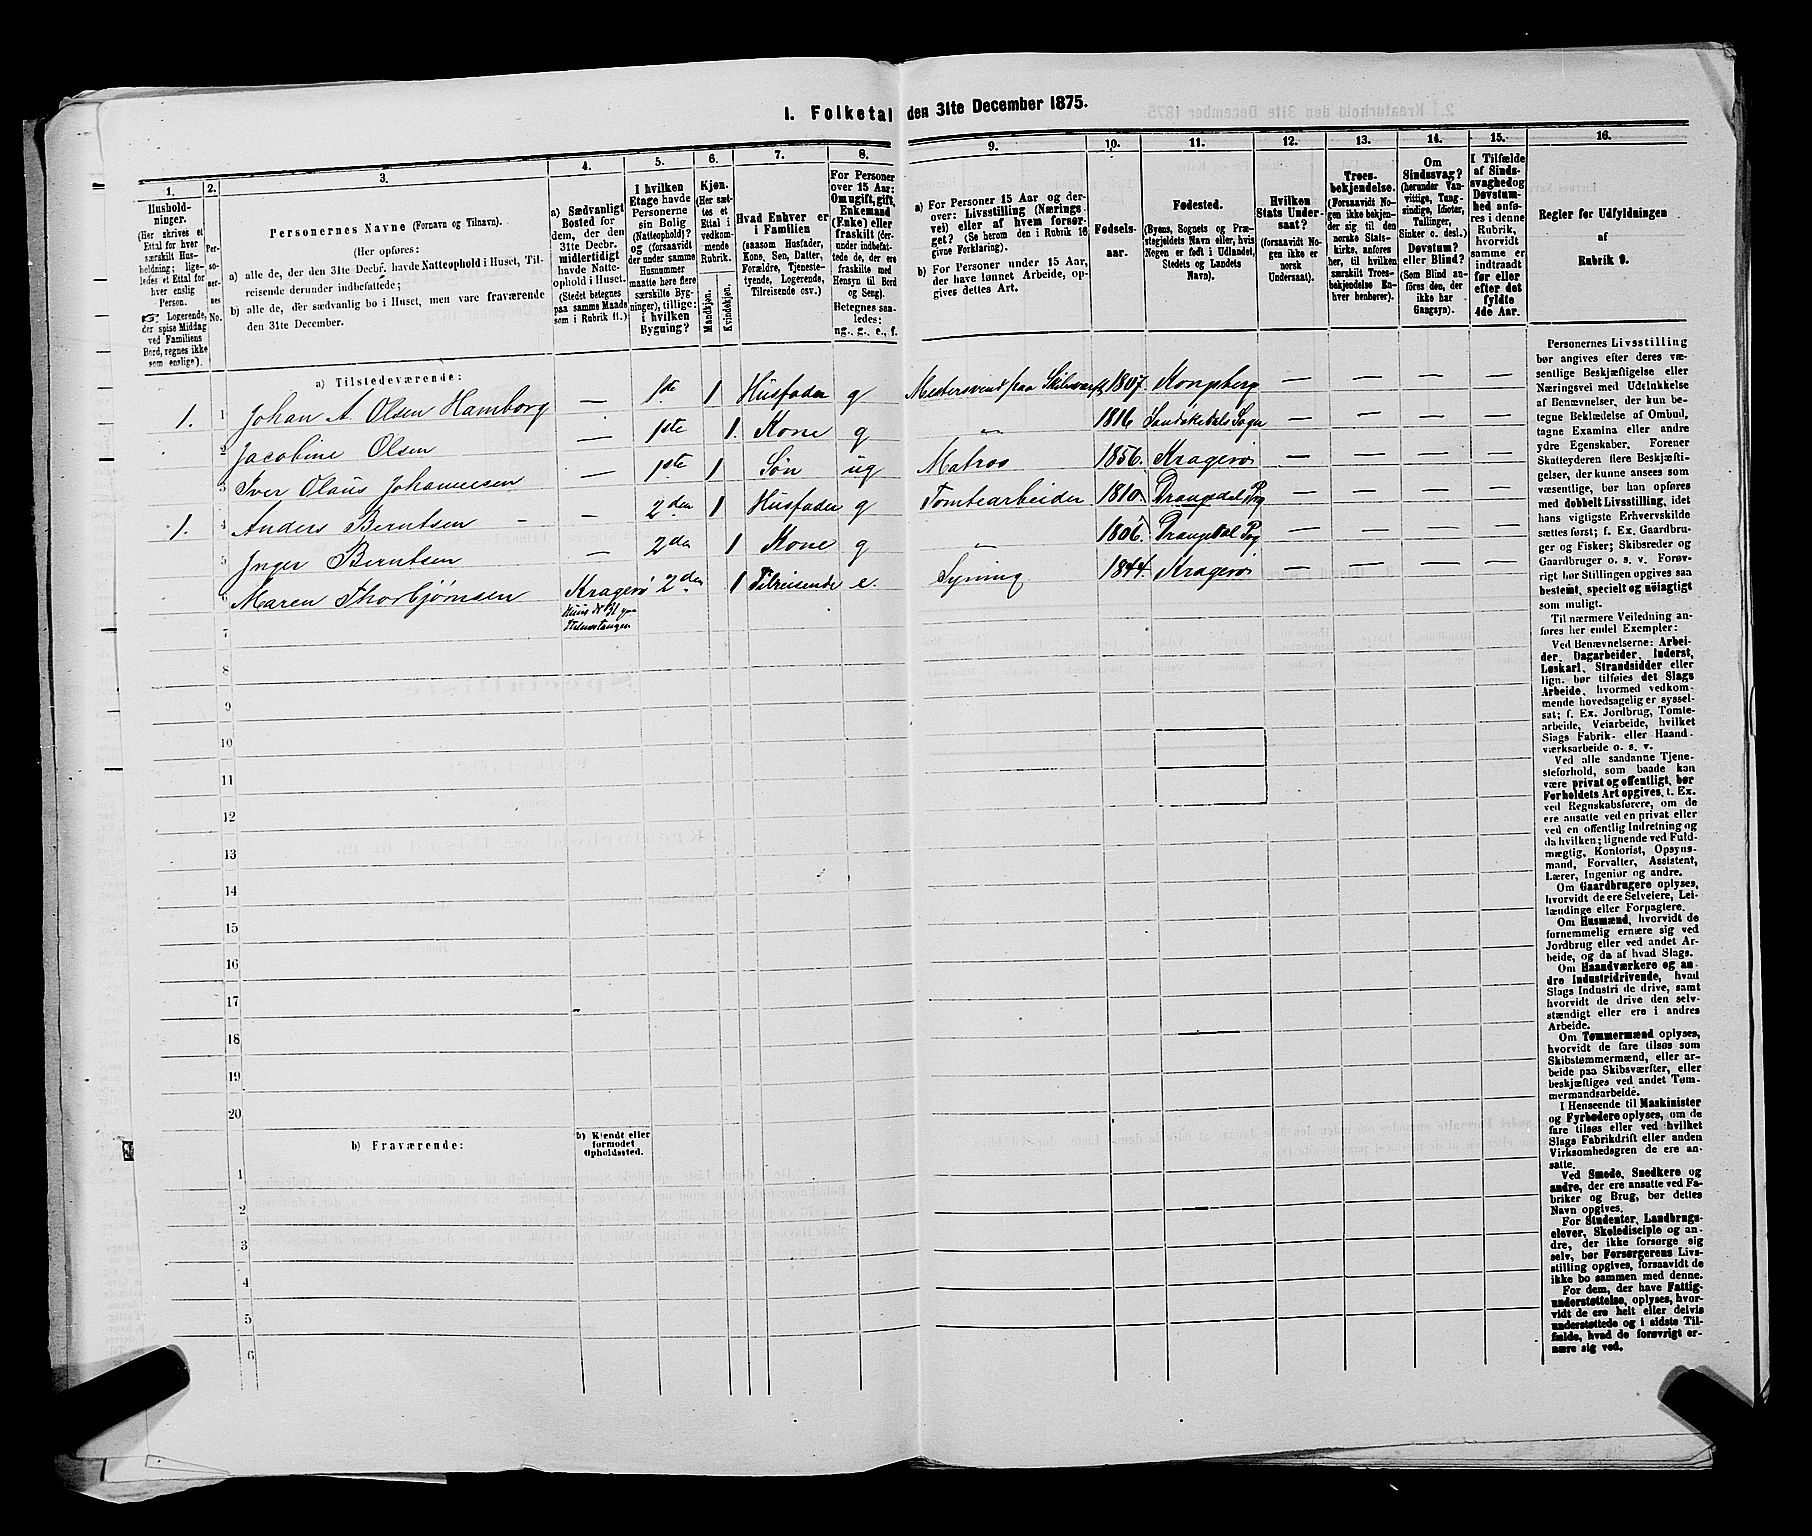 1. Folketal den 31te December 1875.
1.
2.
3.
4.
5.
6.
7.
8.
9.
10.
11.
12.
13.
14.
15.
16.
Husholdninger.
(Her skrives et
Ettal for hver
særskilt Husholdning;
ligeledes et Ettal for
hver enslig
Person.
Logerende,
der spise Middag
ved Familiens
Bord, regnes ikke
som enslige).
Personernes
No.
Personernes Navne (Fornavn og Tilnavn).
(Her opføres:
a) alle de, der den 31te Decbr. havde Natteophold i Huset, Tilreisende derunder indbefattede;
b) alle de, der sædvanlig bo i Huset, men vare fraværende
den 31te December.
a) Sædvanligt
Bosted for
dem, der den
31te Decbr.
midlertidigt
havde Natteophold i Huset.
(Stedet betegnes
paa samme Maade
som i Rubrik 11.)
I hvilken
Etage havde
Personerne
sin Bolig
(Natteophold)?
og (forsaavidt
der under samme
Husnummer
maatte høre flere
særskilte Bygninger), tillige:
i hvilken
Bygning?
Kjøn.
(Her sættes et
Ettal i
vedkommende
Rubrik.
Mandkjøn.
Kvindekjøn.
Hvad Enhver er
i Familien
(saasom Husfader,
Kone, Søn, Datter,
Forældre, Tjenestetyende, Logerende,
Tilreisende osv.)
For Personer
over 15 Aar:
Om ugift, gift,
Enkemand
(Enke) eller
fraskilt (derunder indbefattede de, der ere
fraskilte med
Hensyn til Bord
og Seng).
Betegnes saaledes:
ug., g., e., f.
a) For Personer 15 Aar og derover: Livsstilling (Næringsvei) eller af hvem forsørget? (Se herom den i Rubrik 16
givne Forklaring).
b) For Personer under 15 Aar,
der have lønnet Arbeide, opgives dettes Art.
Fødselsaar.
Fødested.
(Byens, Sognets og Præstegjeldets Navn eller, hvis
Nogen er født i Udlandet,
Stedets og Landets
Navn).
Hvilken
Stats Undersaat?
(forsaavidt Nogen ikke er
norsk
Undersaat).
Troesbekjendelse.
(Forsaavidt Nogen ikke bekjender sig til den
norske Statskirke, anføres
her, til hvilken
særskilt Troesbekjendelse Enhver henhører).
Om
Sindssvag?
(herunder Vanvittige, Tungsindige, Idioter,
Tullinger,
Sinker o. desl.)
Døvstum?
eller Blind?
(Som Blind anføres den, der
ikke har
Gangsyn).
I Tilfælde
af Sindssvaghed og
Døvstumhed anføres i denne
Rubrik,
hvorvidt
samme er
indtraadt
før eller
efter det
fyldte
4de Aar.
Regler for Udfyldningen
af
Rubrik 9.
a) Tilstedeværende:
1. 1 Johan A. Olsen Hamborg — 1ste 1 Husfader g Mestersvend paa Skibsværft 1807. Kongsberg — — — —
2 Jacobine Olsen — 1ste 1. Kone g „ 1816 Sandøkedals Sogn — — — —
3 Iver Olaus Johannesen — 1ste 1 Søn ug Matros 1856. Kragerø — — — —
1. 4 Anders Berntsen — — 2den 1 Husfader g Tomtearbeider 1810. Drangedal Pg — — — —
5 Inger Berntsen — 2den 1 Kone g „ 1806. Drangedal Pg — — — —
6 Maren Thorbjørnsen Kragerø 2den 1 Tilreisende e. Syning 1844. Kragerø — — — —
7
8
9
10
11
12
13
14
15
16
17
18
19
20
b) Fraværende:
b) Kjendt eller
formodet
Opholdssted.
1
2
3
4
5
6
Personernes Livsstilling
bør angives efter deres væsentlige Beskjæftigelse eller
Næringsvei med Udelukkelse
af Benævnelser, der kun betegne Beklædelse af Ombud,
tagne Examina eller andre
ydre Egenskaber. Forener
Skatteyderen flere Beskjæftigelser, der kunne ansees som
væsentlige, bør han opføres
med dobbelt Livsstilling, idet
hans vigtigste Erhvervskilde
sættes først; f. Ex. Gaardbruger og Fisker; Skibsreder og
Gaardbruger o. s. v. Forøvrigt bør Stillingen opgives saa
bestemt, specielt og nøiagtigt
som muligt.
Til nærmere Veiledning anføres her endel Exempler:
Ved Benævnelserne: Arbeider, Dagarbeider, Inderst,
Løskarl, Strandsidder eller
lign. bør tilføies det Slags
Arbeide, hvormed vedkommende hovedsagelig er sysselsat; f. Ex. Jordbrug, Tomtearbeide, Veiarbeide, hvilket
Slags Fabrik- eller Haandværksarbeide o. s. v.
Ved alle saadanne Tjenesteforhold, som baade kan
være privat og offentligt, bør
Forholdets Art opgives, t. Ex.
ved Regnskabsførere, om de
ere ansatte ved en privat eller
ved en offentlig Indretning og
da hvilken; lignende ved Fuldmægtig, Kontorist, Opsynsmand, Forvalter, Assistent,
Lærer, Ingeniør og andre.
Om Gaardbrugere oplyses,
hvorvidt de ere Selveiere, Leilændinge eller Forpagtere.
Om Husmænd, hvorvidt de
fornemmelig ernære sig ved
Jordbrug eller ved andet Arbeide, og da af hvad Slags.
Om Haandværkere og andre Industridrivende, hvad
Slags Industri de drive, samt
hvorvidt de drive den selvstændigt eller ere i andres
Arbeide.
Om Tømmermænd oplyses,
hvorvidt de fare tilsøs som
Skibstømmermænd, eller arbeide paa Skibsværfter, eller
beskjæftiges ved andet Tømmermandsarbeide.
I Henseende til Maskinister
og Fyrbødere oplyses, om de
fare tilsøs eller ved hvilket
Slags Fabrikdrift eller anden
Virksomhedsgren de ere ansatte.
Ved Smede, Snedkere og
andre, der ere ansatte ved Fabriker og Brug, bør dettes
Navn opgives.
For Studenter, Landbrugselever, Skoledisciple og andre, der ikke forsørge sig
selv, bør Forsørgerens Livsstilling opgives, forsaavidt de
ikke bo sammen med denne.
For dem, der have Fattigunderstøttelse, oplyses, hvorvidt de ere helt eller delvis
understøttede og i sidste Tilfælde, hvad de forøvrigt ernære sig ved.